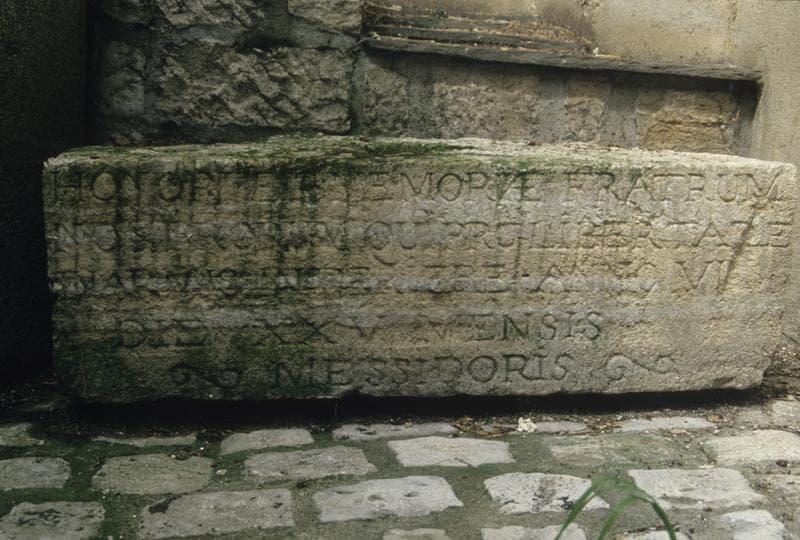 HONORI ET MEMORIÆ FRATRUM
NOSTRORUM QUI PRO LIBERTATE
ANNO VI
DIE XXV MENSIS
MESSIDORIS